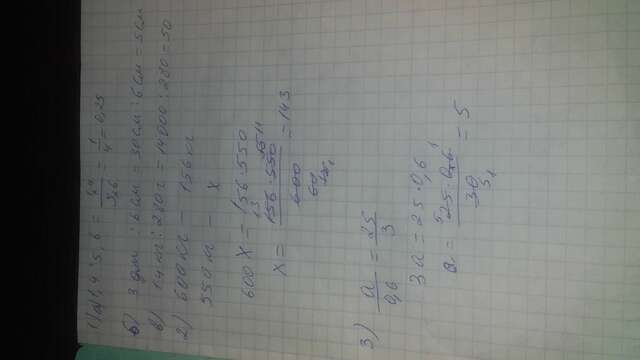 1) а) 1,4 : 5,6 = 1,4/5,6 = 1/4 = 0,25
б) 3 дм : 6 см = 30 см : 6 см = 5 см
в) 14 кг : 280 г = 14000 : 280 = 50
2) 600 кг – 156 кг
550 кг – х
600 х = 156 · 550
13 15 11
х = 156 · 550 / 600 = 143
60
3) а/0,6 = 25/3
3а = 25 · 0,6
а = 25 · 0,6 / 3 = 5